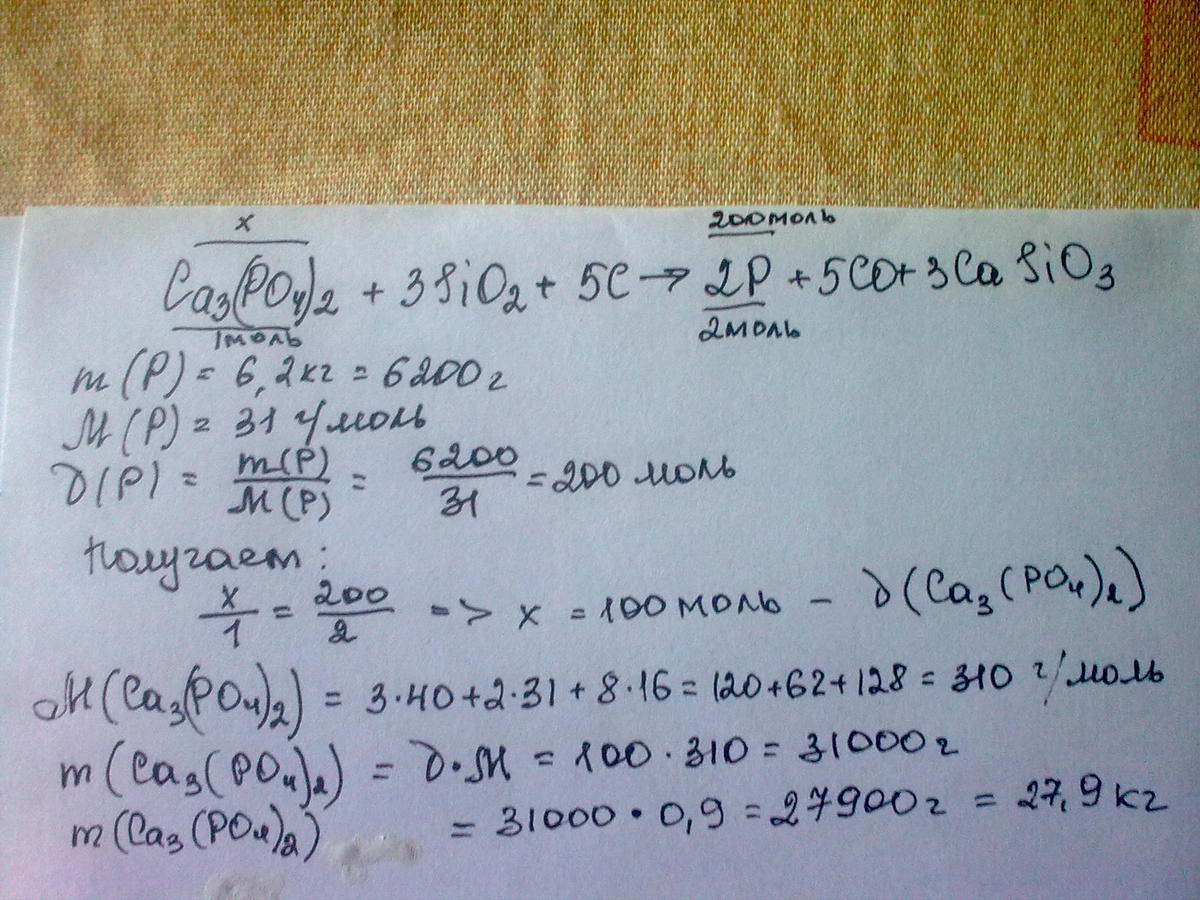 x 200моль
Ca₃(PO₄)₂ + 3SiO₂ + 5C → 2P + 5CO + 3CaSiO₃
1моль 2моль
m(P) = 6,2кг = 6200г
M(P) = 31 г/моль
ν(P) = m(P)/M(P) = 6200/31 = 200 моль
Получаем:
x/1 = 200/2 => x = 100моль – ν(Ca₃(PO₄)₂)
M(Ca₃(PO₄)₂) = 3·40+2·31+8·16=120+62+128=310 г/моль
m(Ca₃(PO₄)₂) = ν·M = 100·310 = 31000г
m(Ca₃(PO₄)₂) = 31000·0,9=27900г = 27,9кг